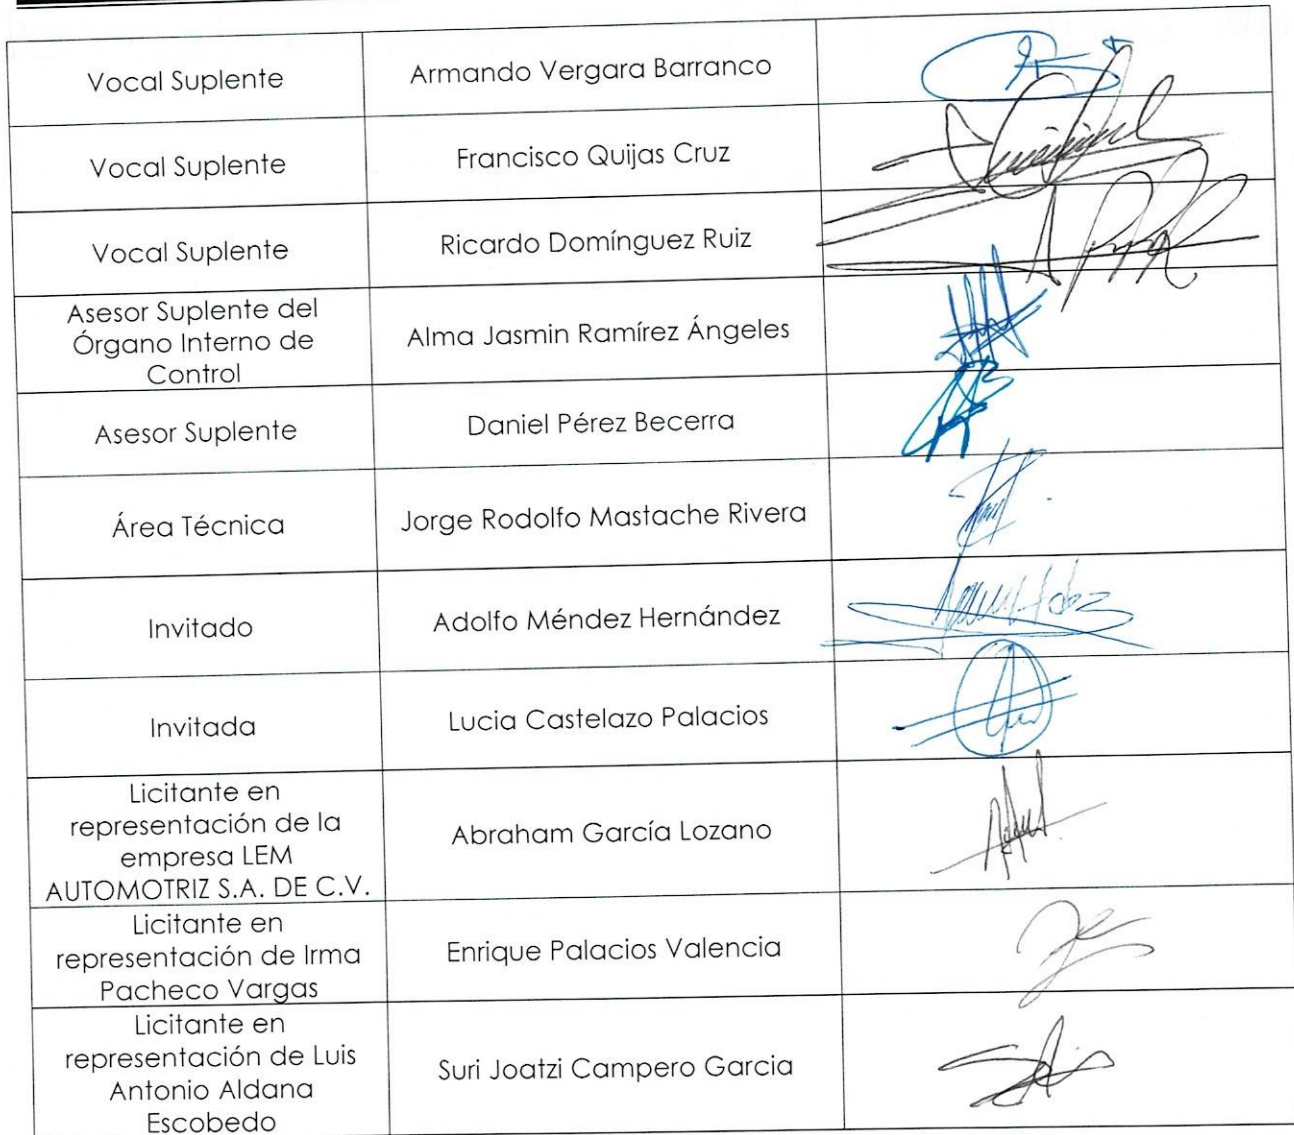 Vocal Suplente
Armando Vergara Barranco
Vocal Suplente
Francisco Quijas Cruz
Vocal Suplente
Ricardo Domínguez Ruiz
Asesor Suplente del
Órgano Interno de
Control
Alma Jasmin Ramírez Ángeles
Asesor Suplente
Daniel Pérez Becerra
Área Técnica
Jorge Rodolfo Mastache Rivera
Invitado
Adolfo Méndez Hernández
Invitada
Lucia Castelazo Palacios
Licitante en
representación de la
empresa LEM
AUTOMOTRIZ S.A. DE C.V.
Abraham García Lozano
Licitante en
representación de Irma
Pacheco Vargas
Enrique Palacios Valencia
Licitante en
representación de Luis
Antonio Aldana
Escobedo
Suri Joatzi Campero Garcia